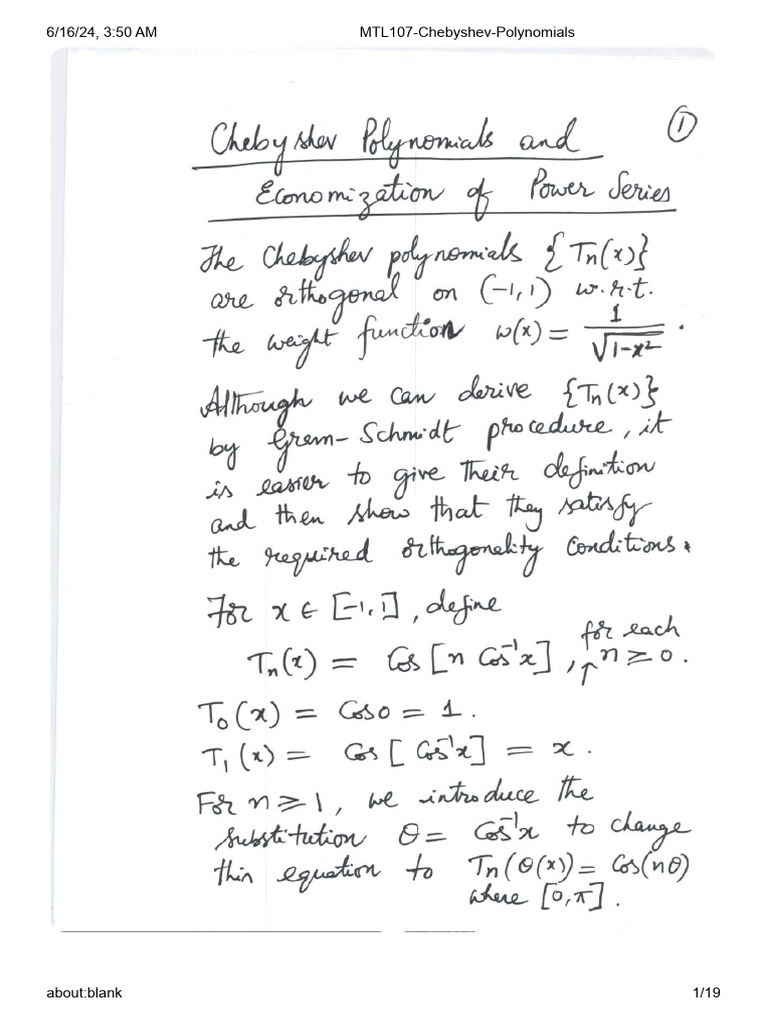 6/16/24, 3:50 AM MTL107-Chebyshev-Polynomials
①
Chebyshev Polynomials and
Economization of Power Series
The Chebyshev polynomials {Tn(x)}
are orthogonal on (-1,1) w.r.t.
the weight function w(x) = 1/√(1-x²) .
Although we can derive {Tn(x)}
by Grem-Schmidt procedure, it
is easier to give their definition
and then show that they satisfy
the required orthogonality conditions.
For x ∈ [-1,1], define
Tn(x) = Cos[n Cos⁻¹x], ↑ for each n ≥ 0.
T₀(x) = Cos0 = 1.
T₁(x) = Cos[Cos⁻¹x] = x.
For n ≥ 1, we introduce the
substitution θ = Cos⁻¹x to change
this equation to Tn(θ(x)) = Cos(nθ)
where [0,π].
about:blank 1/19